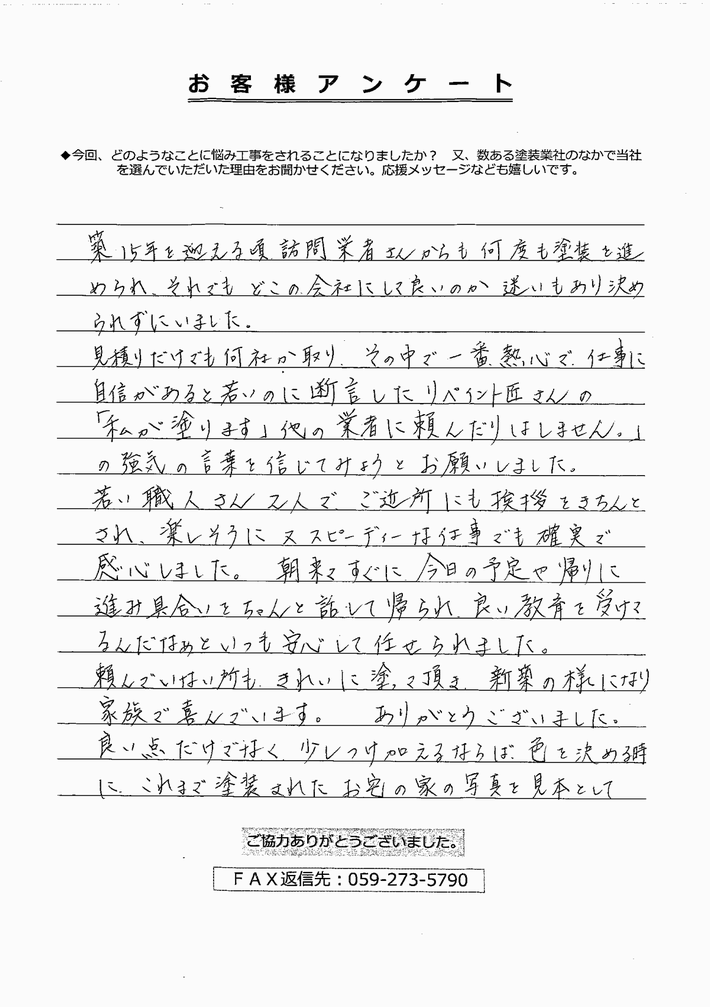 お客様アンケート
◆今回、どのようなことに悩み工事をされることになりましたか？　又、数ある塗装業社のなかで当社
を選んでいただいた理由をお聞かせください。応援メッセージなども嬉しいです。
築15年を迎える頃 訪問業者さんからも何度も塗装を進
められ、それでも どこの会社にして良いのか 迷いもあり決め
られずにいました。
見積りだけでも何社か取り、その中で一番熱心で、仕事に
自信があると若いのに断言したリペイント匠さんの
「私が塗ります」他の業者に頼んだりはしません。」
の強気の言葉を信じてみようとお願いしました。
若い職人さん2人で、ご近所にも挨拶をきちんと
され、楽しそうに 又スピーディーな仕事でも確実で
感心しました。　朝来てすぐに 今日の予定や帰りに
進み具合いをちゃんと話して帰られ、良い教育を受けて
るんだなぁといつも安心して任せられました。
頼んでいない所も、きれいに塗って頂き、新築の様になり
家族で喜んでいます。　ありがとうございました。
良い点だけでなく、少しつけ加えるならば、色を決める時
に、これまで塗装されたお宅の家の写真を見本として
ご協力ありがとうございました。
ＦＡＸ返信先：059-273-5790